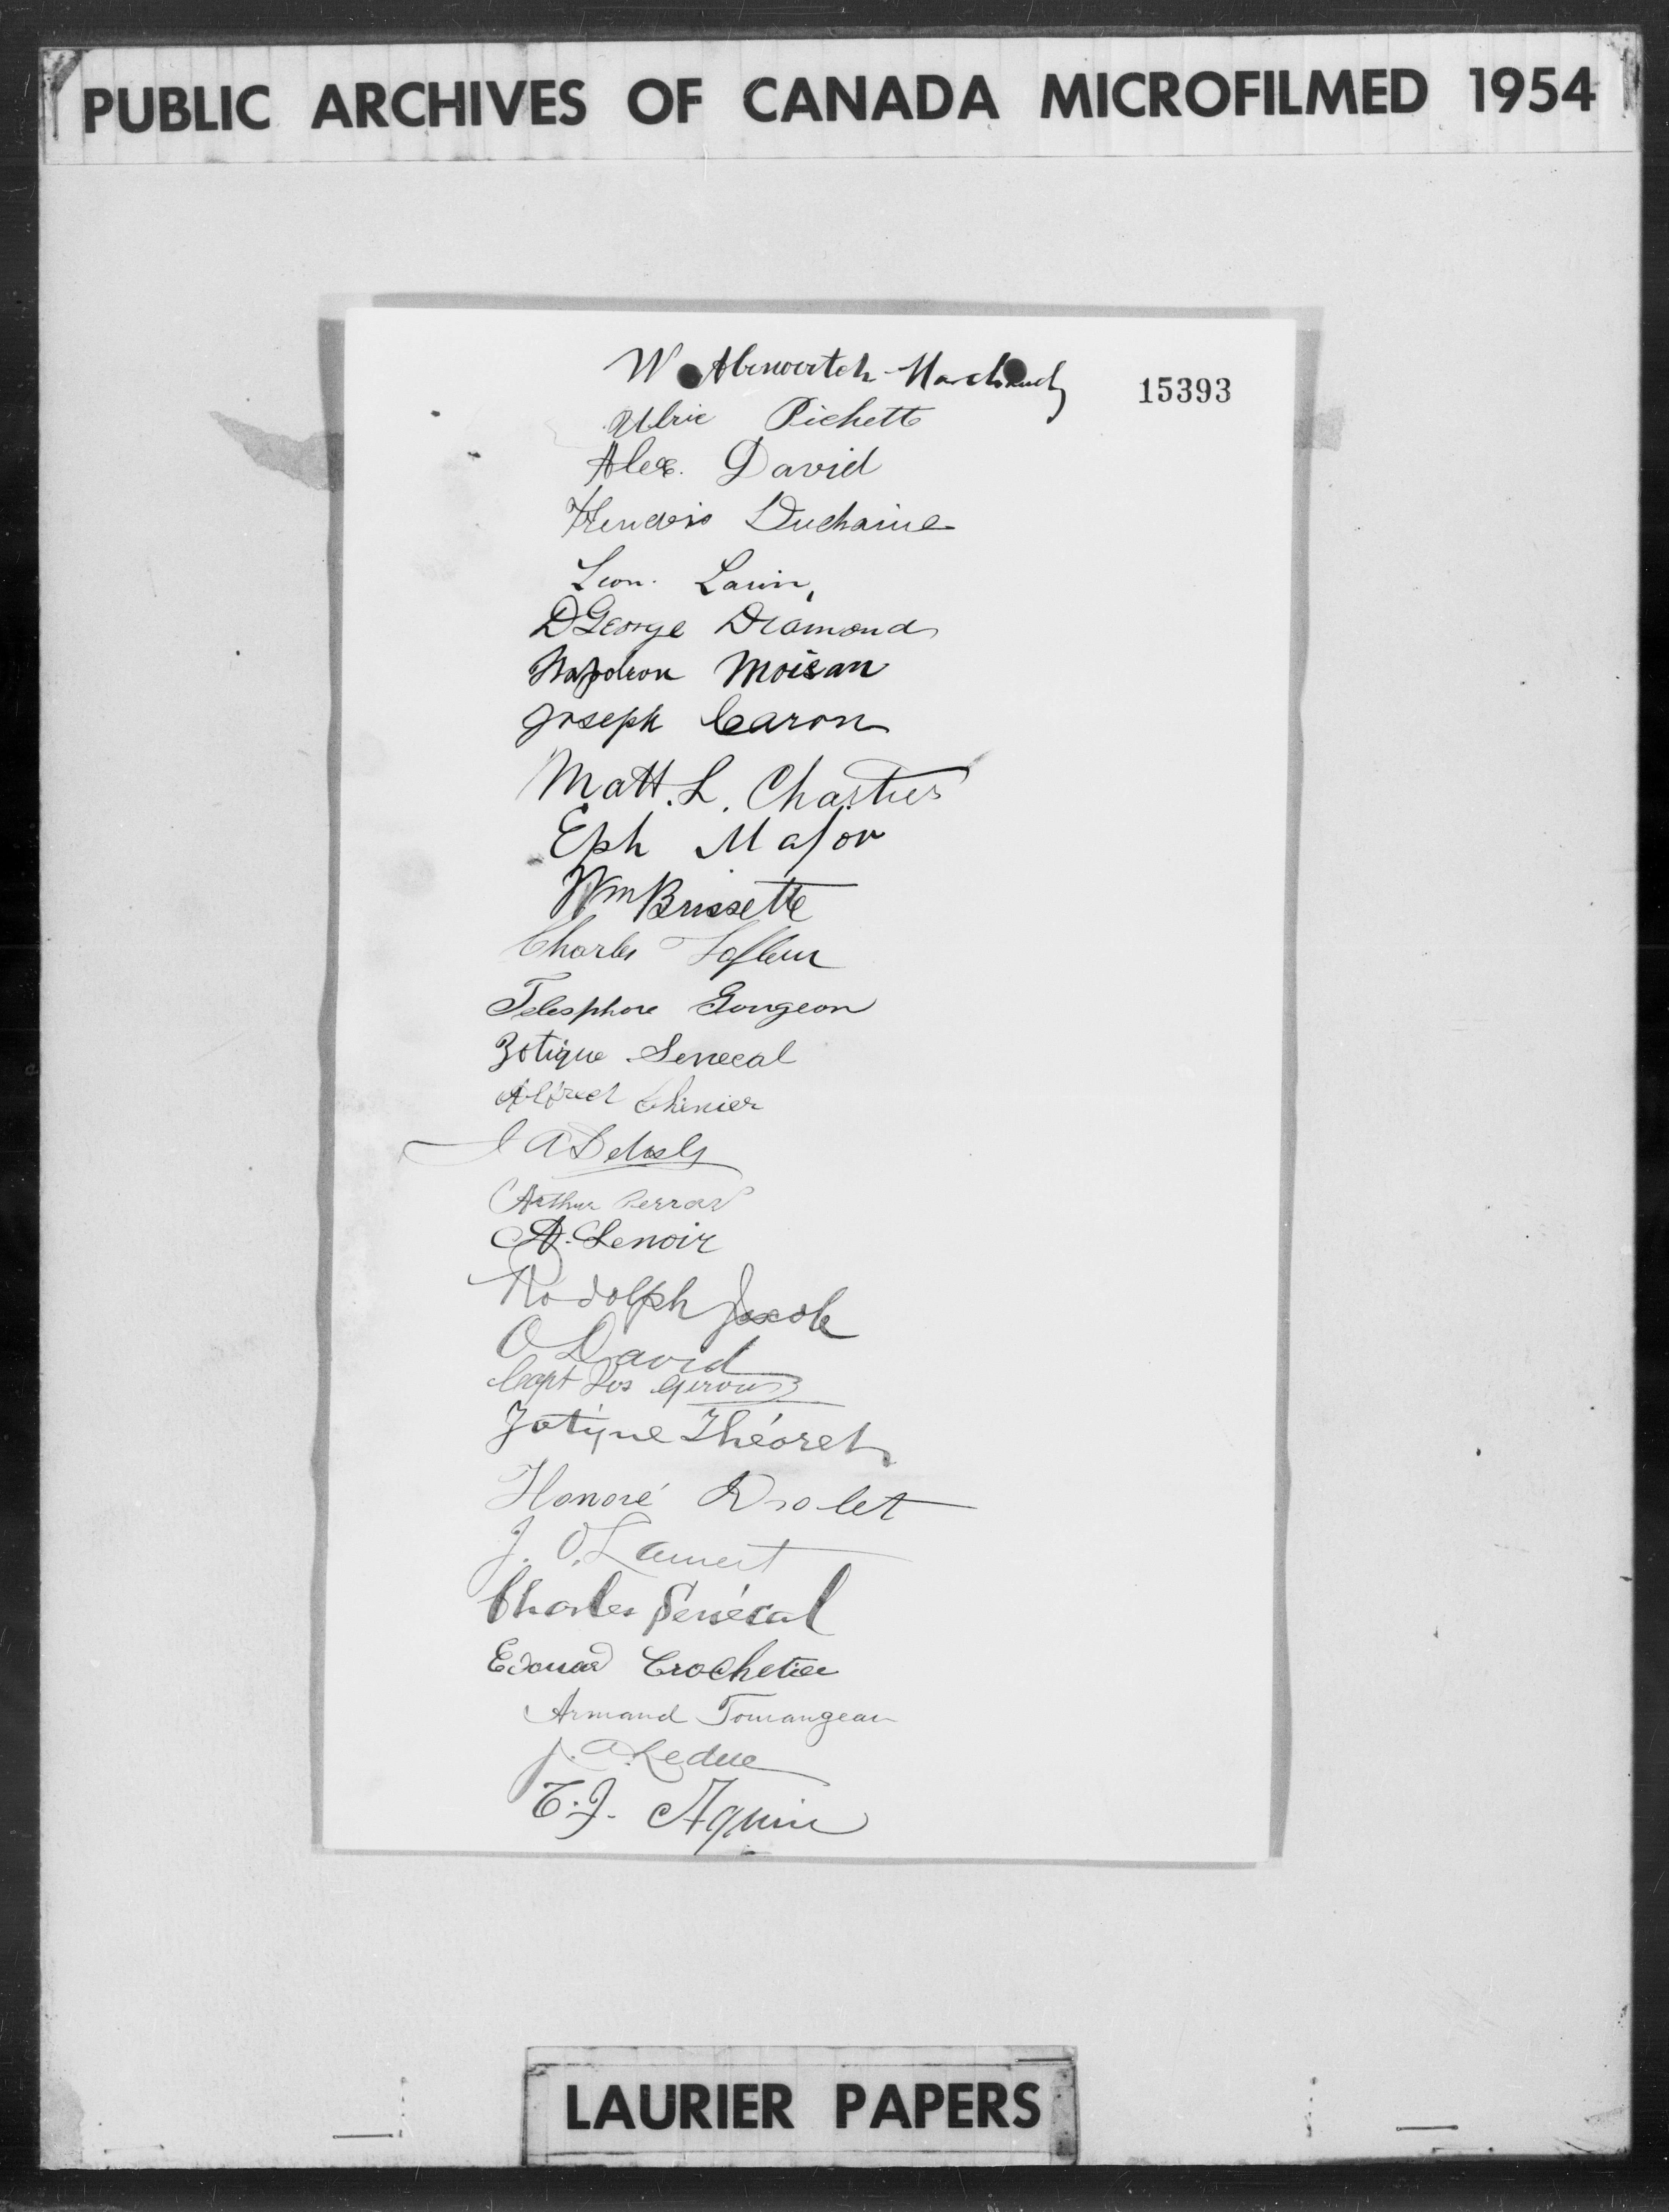 PUBLIC ARCHIVES OF CANADA MICROFILMED 1954
15393
W
Ulric Pichette
Alex. David
Duchaine
Leon. Larin,
D George Diamond
Napoleon Moisan
Joseph Caron
Matt. L. Chartier
Eph Major
Wm Brissette
Charles Lafleur
Telesphore Gougeon
Zotique Senecal
Alfred Chenier
J A Delisle
Arthur Perras
A. Lenoir
Rodolph
O David
Capt Jos Giroux
Zotique Théoret
Honoré Drolet
J. O.
Charles Senécal
Edouard Crochetier
Armand Tourangeau
J. A. Leduc
T. J. Aquin
LAURIER PAPERS